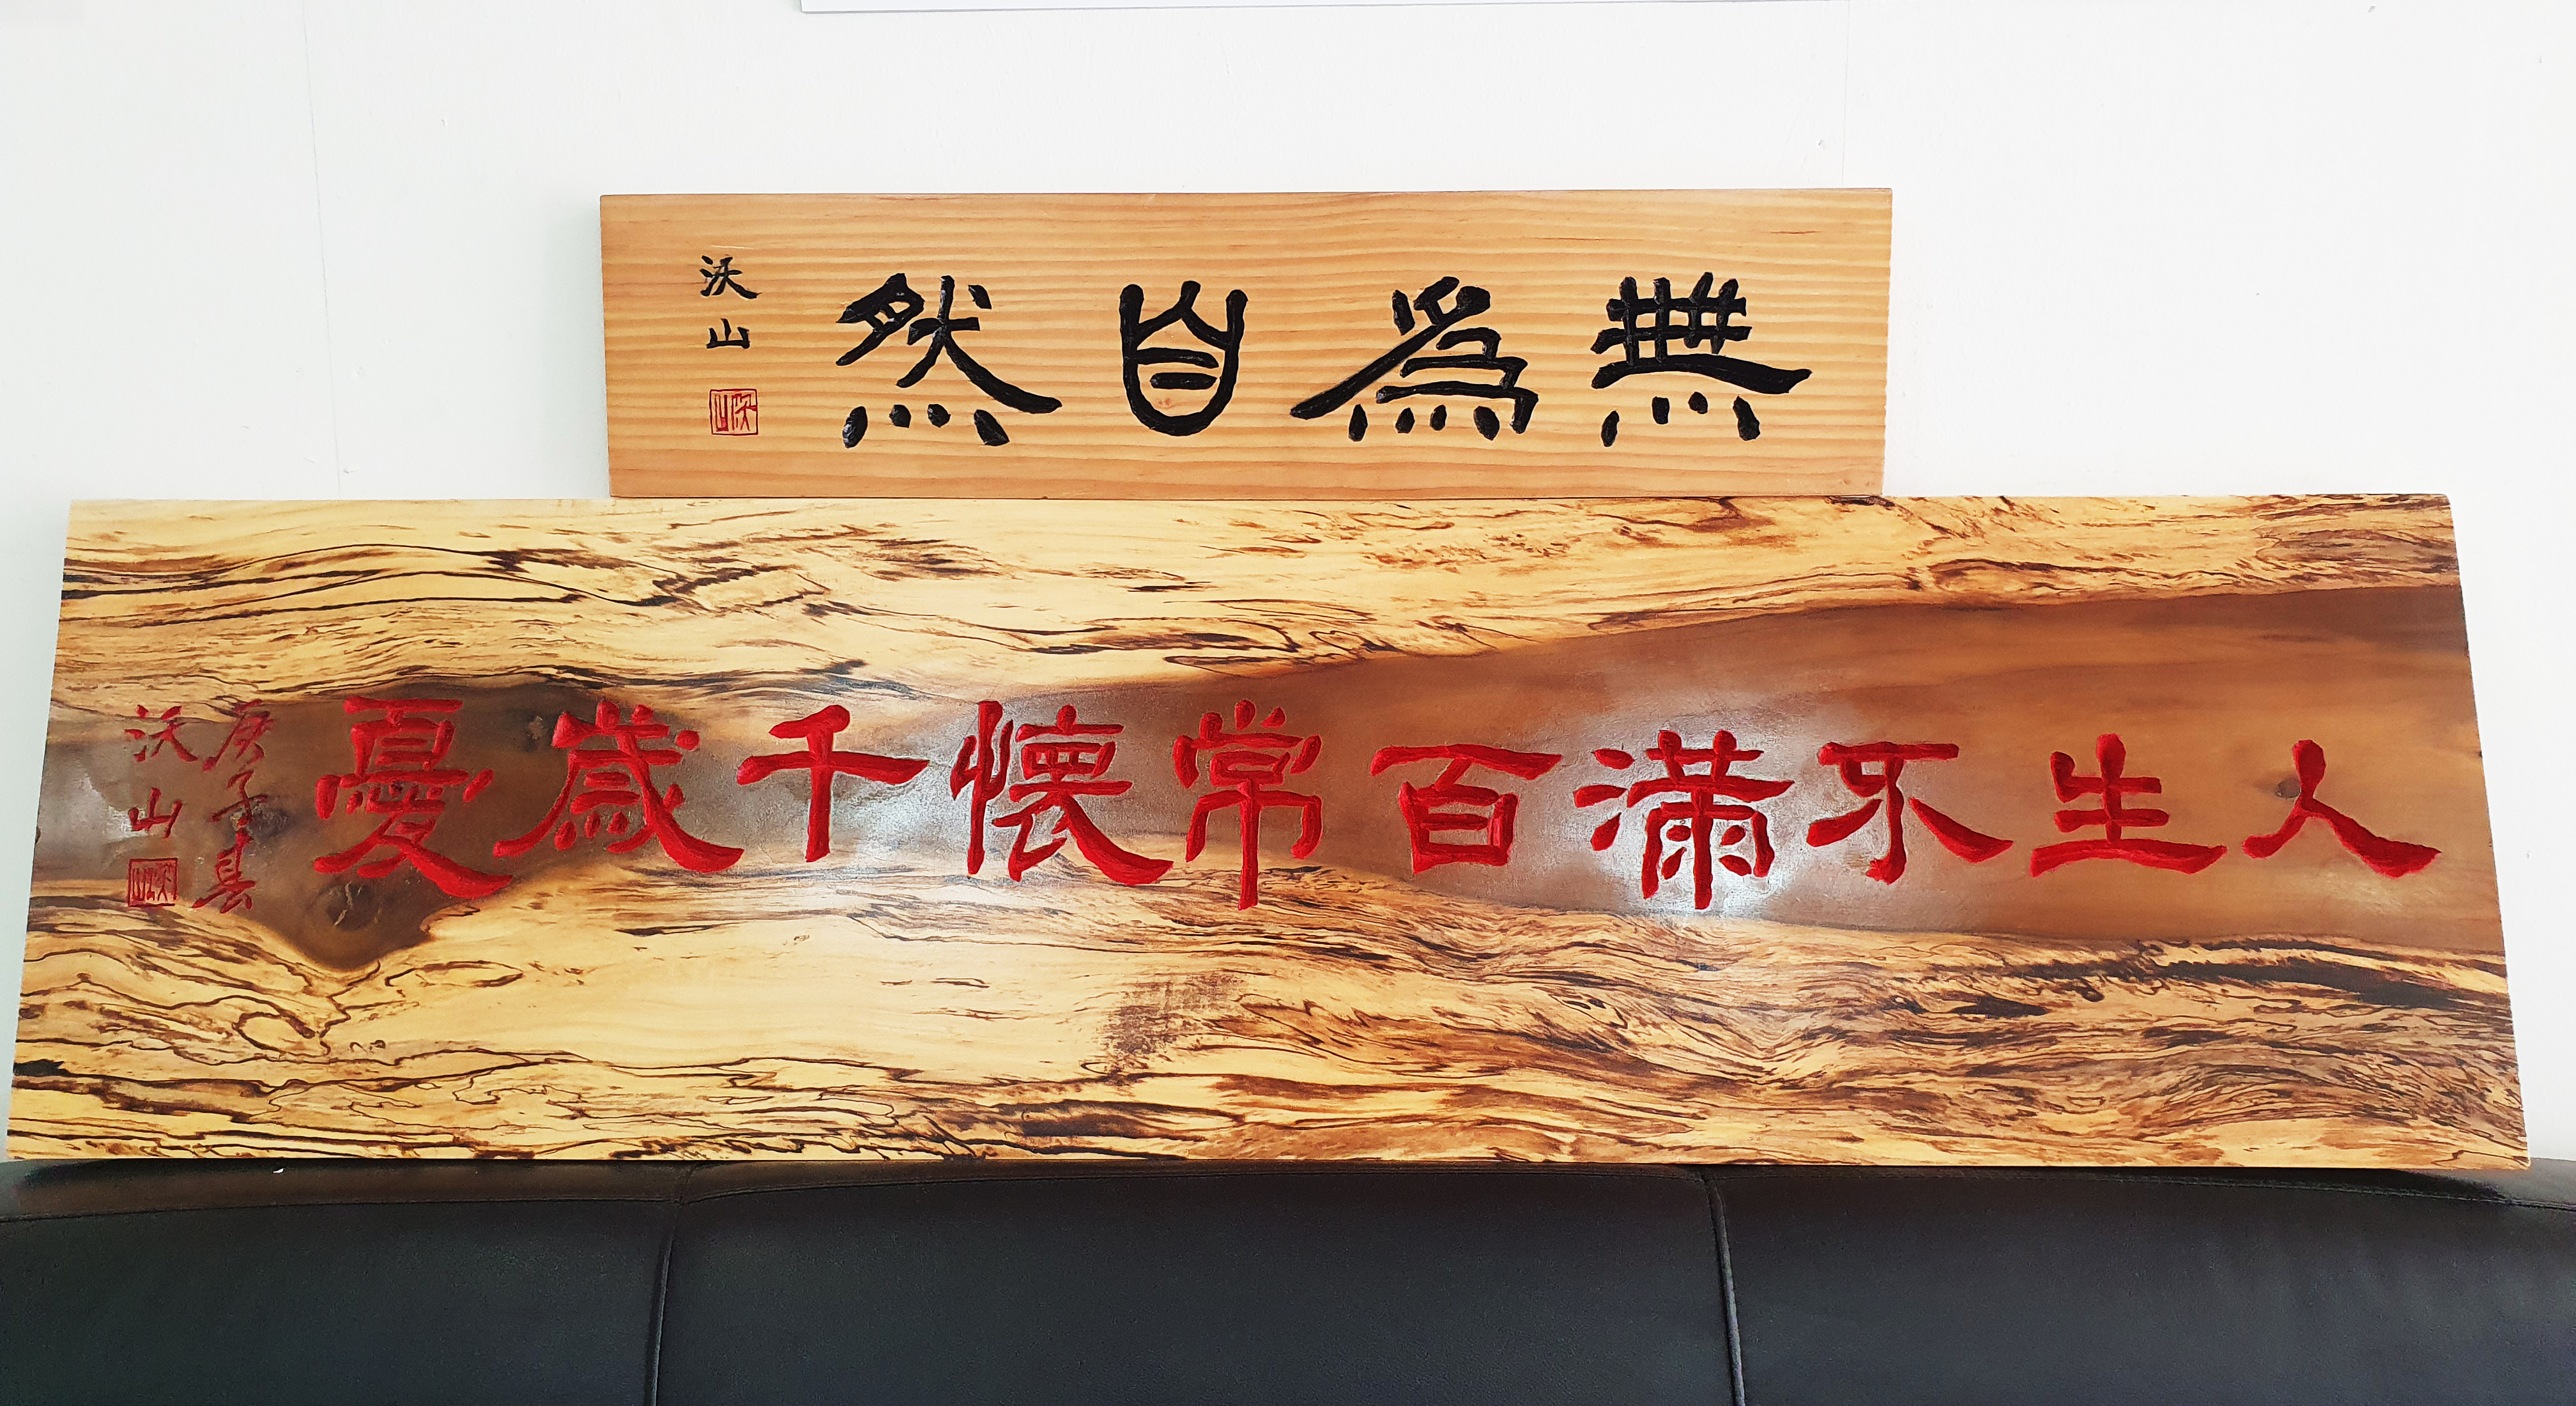 無為自然
沃山
人生不滿百常懷千歲憂
庚子春
沃山